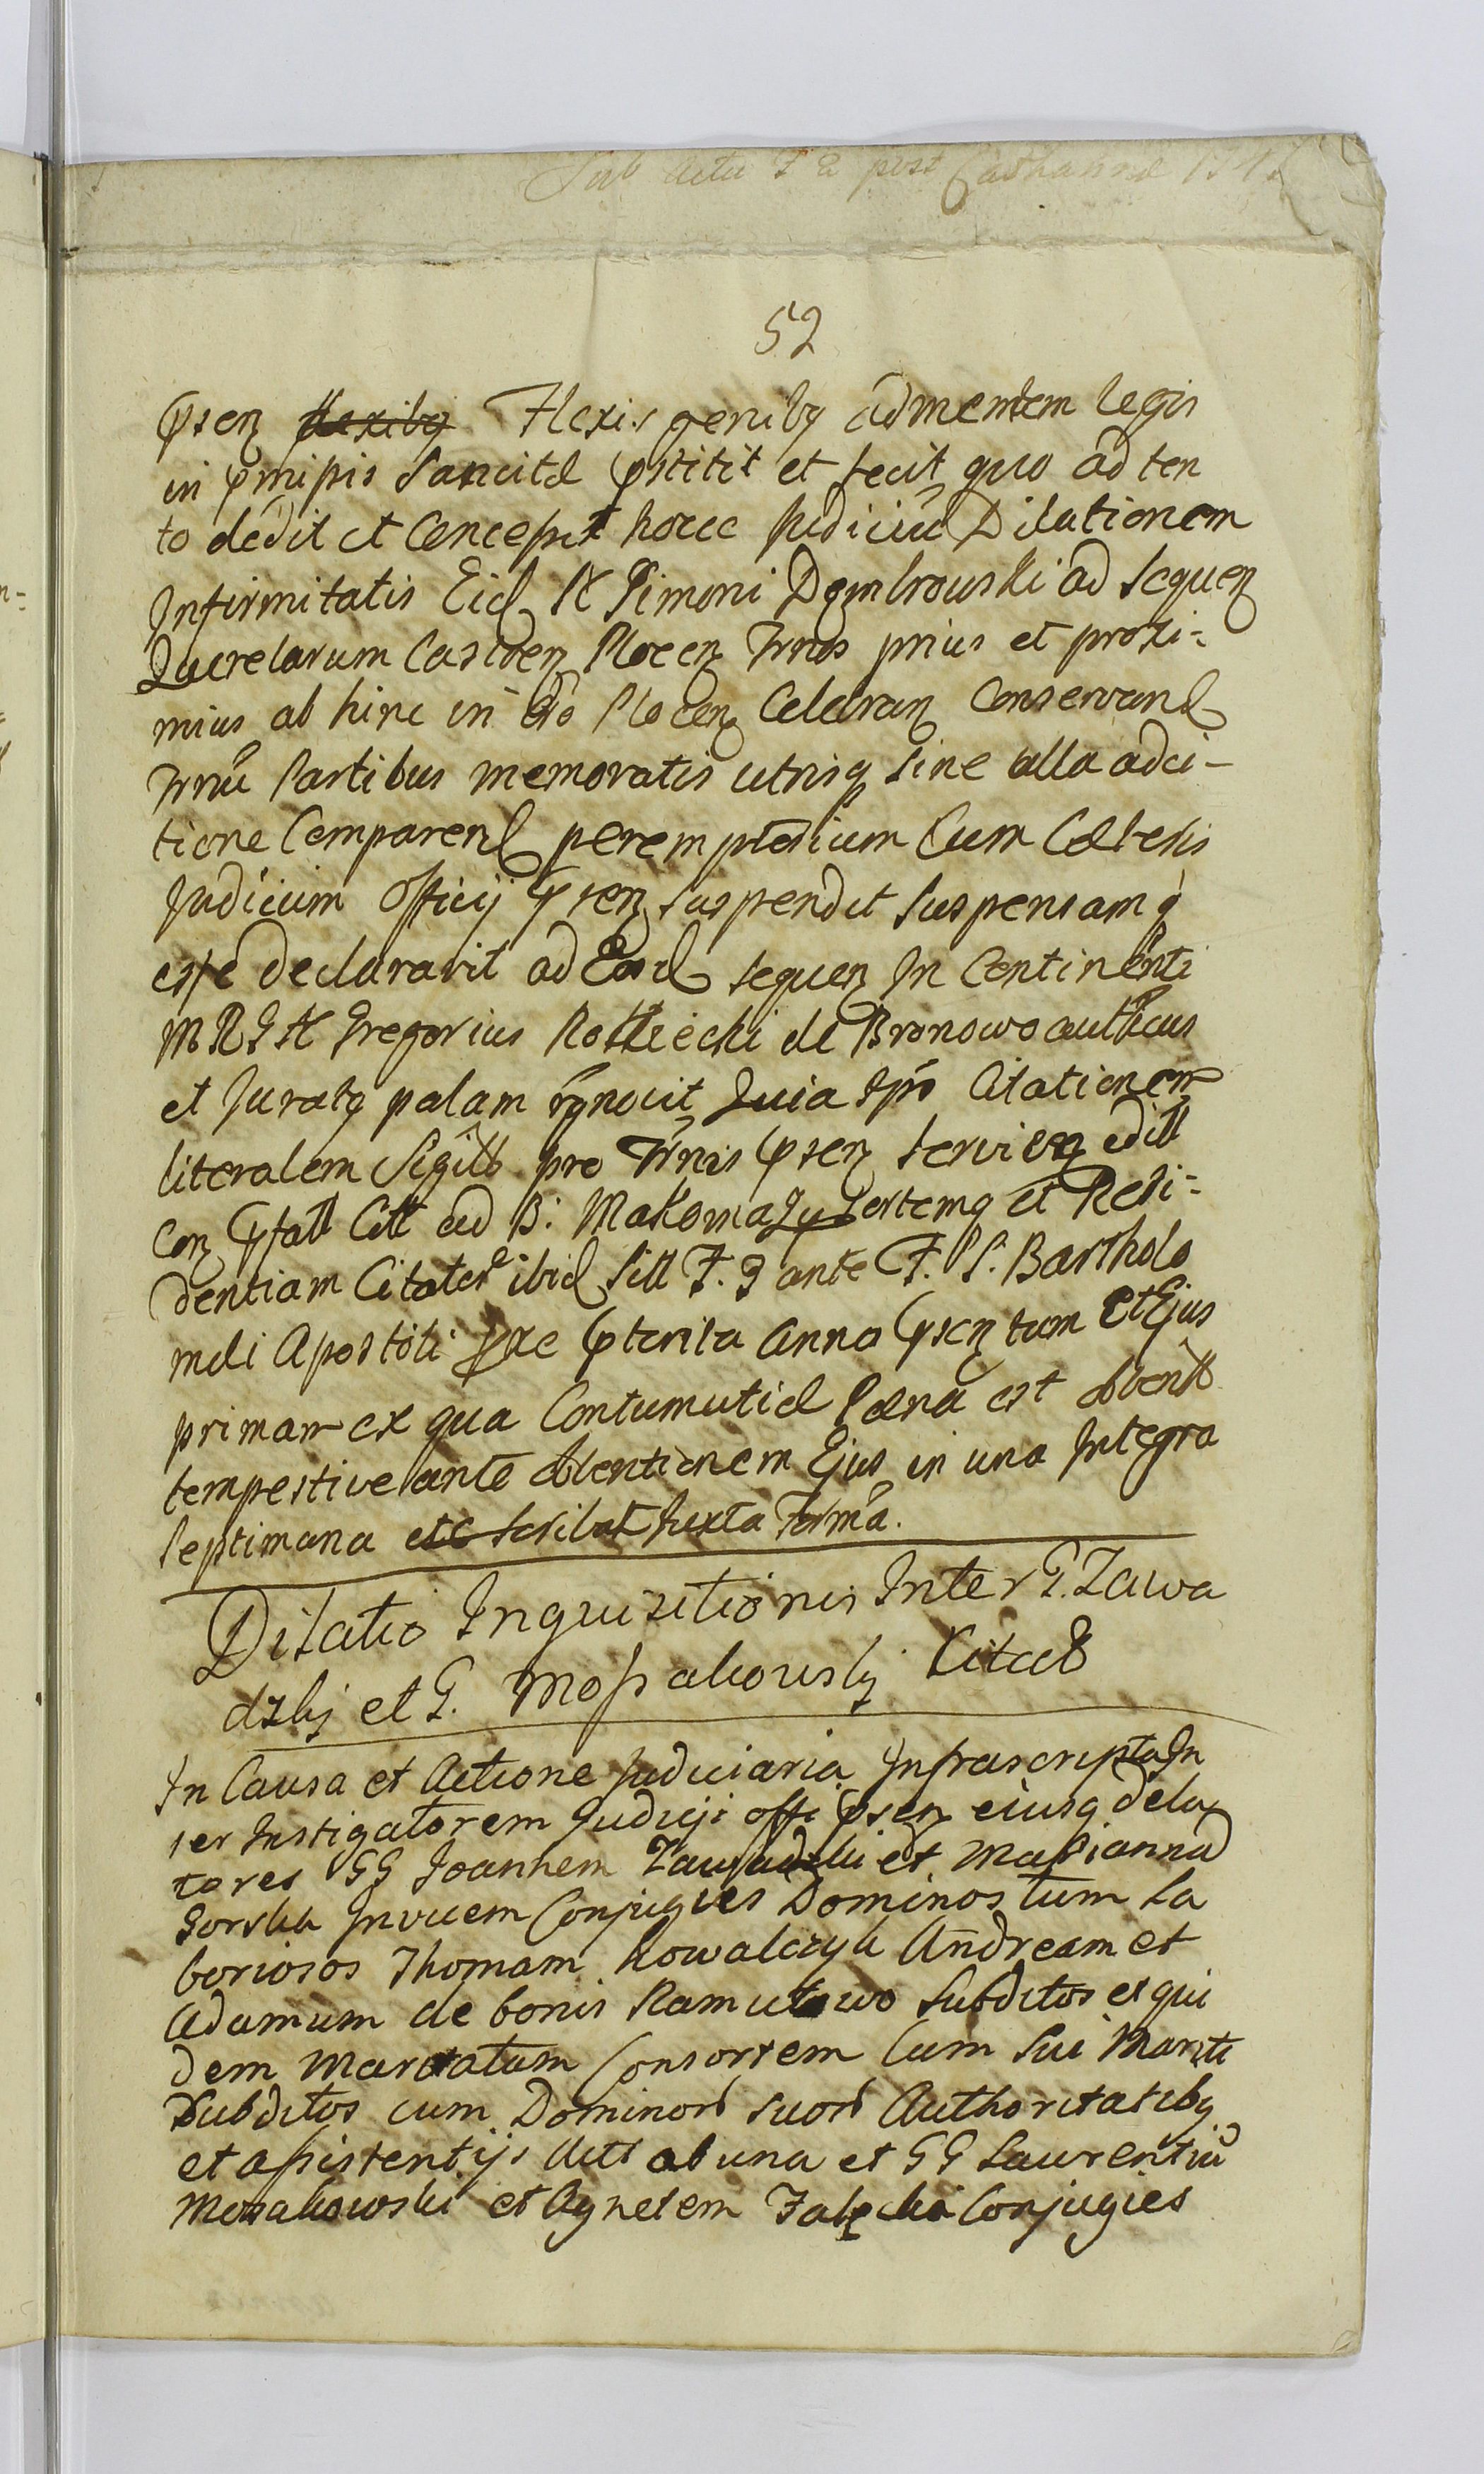 Sub Actu F 2 post
52
Psen flexibq Flexis genibq ad mentem legis
in pmipis sancitæ pstitit et fecit, quo ad ten
to dedit et Concepit hocce Judiciū Dilationem
Infirmitatis Eid N Simoni Dembrowski ad sequen
Querelarum Castren Plocen Trnos prius et proxi=
mius ab hinc in Plocen Celebran Conservand
Trnū Partibus memoratis utrisq sine ulla adci-
tione Comparend peremptorium Cum Cæteris
Judicium Officij Psen suspendit suspensamq
esse declaravit ad Eosd sequen In Continenti
MRS N Gregorius Rostkiecki de Bronowo authcus
et Juratq palam rgnovit, Quia Ipse Citationem
literalem Sigillo pro Trnis Psen servien edit
Con Pfatt Citt ad B: Makomazy Sortemq et Resi=
dentiam Citator ibid Sitt F. 3 ante F. S. Bartholo
mei Apostoli pterita Anno Psen tam et Ejus
primam ex qua Contumatiæ Pæna est obtent
tempestive ante obtentionem Ejus in una Integra
septimana etc scribat Juxta Formā.
Dilatio Inquisitionis Inter G. Zawa
dzki et G. Mossakowski Citat
In Causa et Actione Judiciaria Infrascripta In
ter Instigatorem Judicÿ offi Psen eiusq dela
tores GG Joannem Zawadzki et Mariannā
Gorska Invicem Conjuges Dominos tum La
boriosos Thomam Kowalczyk Andream et
Adamum de bonis Ramutowo Subditos et qui
dem Maritatum Consortem Cum Sui Mariti
Subditos cum Dominor suor Authoritatibq
et assistentÿs Actt ab una et GG Laurentiū
Mosakowski et Agnetem Zaleska Conjuges